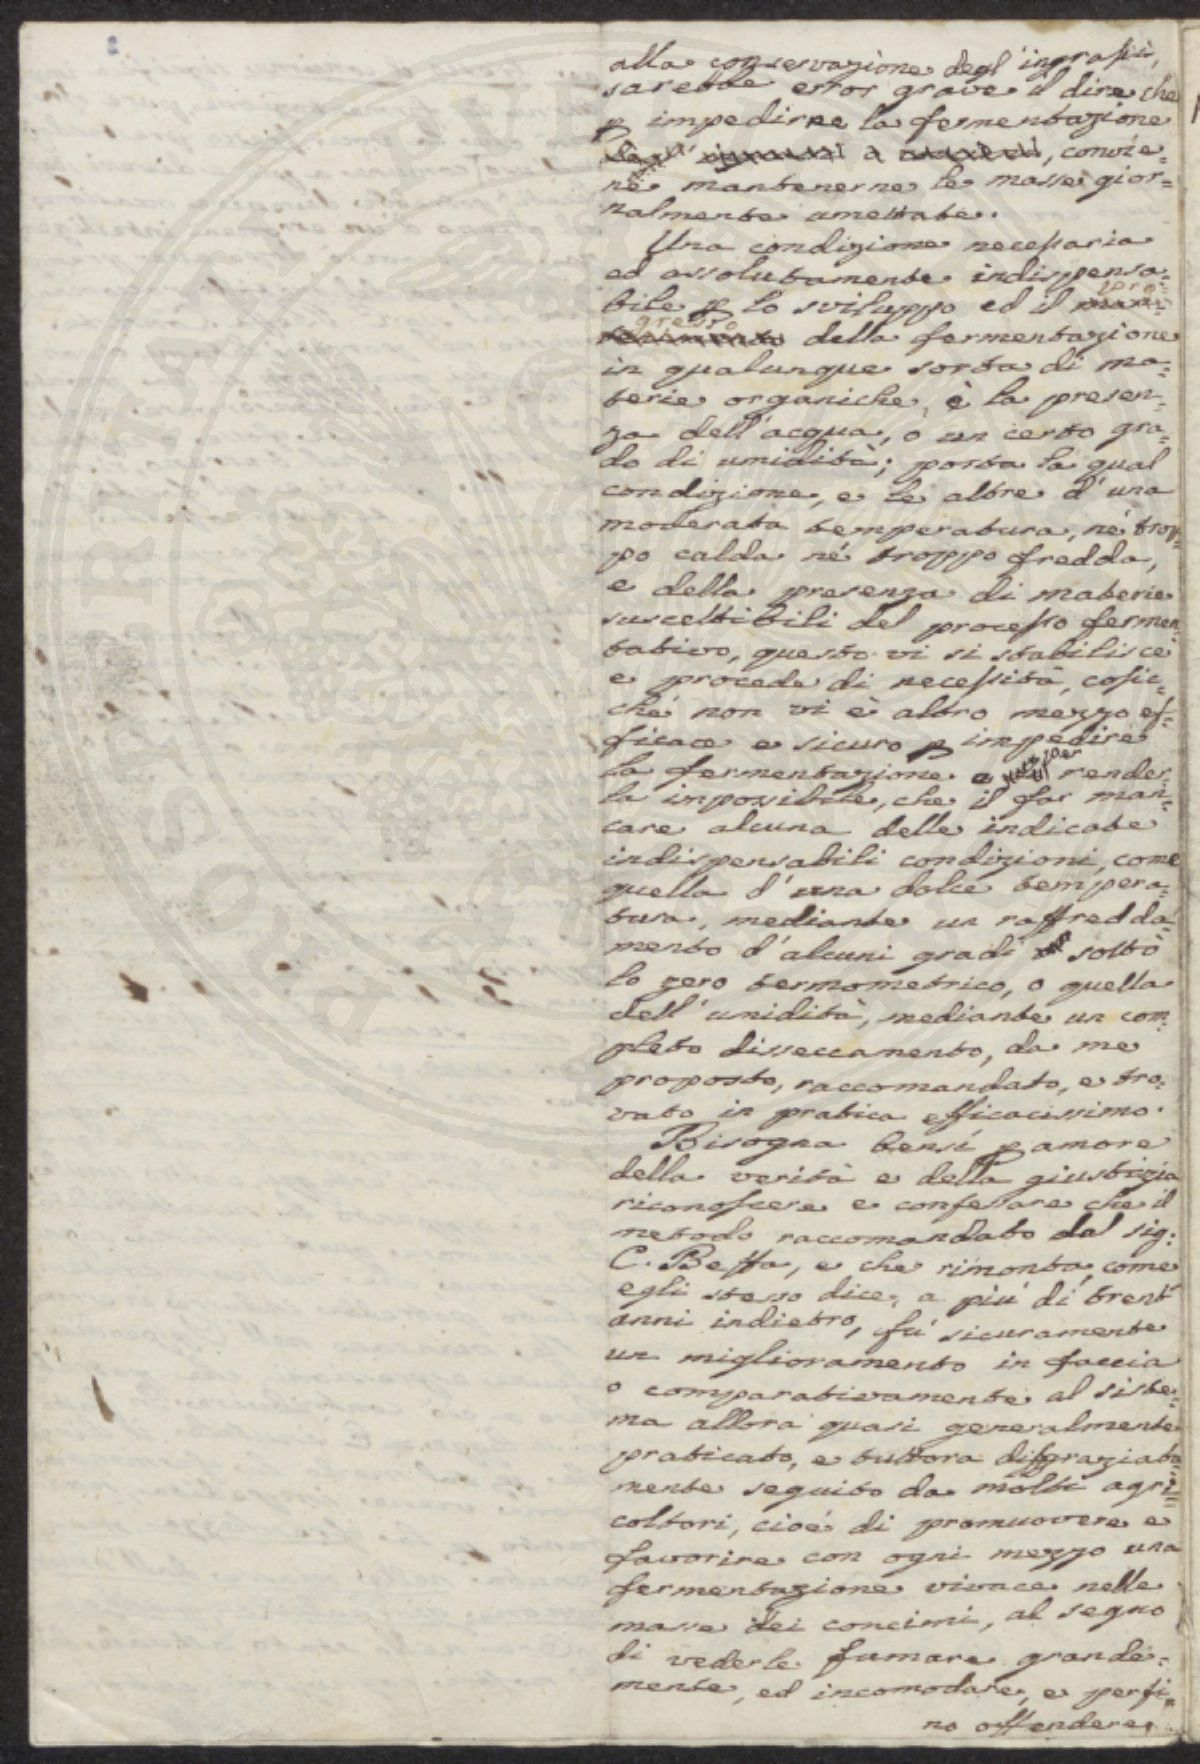 alla conservazione degl'ingrassi,
sarebbe error grave il dire che
p impedirne la fermentazione
a, convie=
ne mantenerne le masse gior=
nalmente umettate.
Una condizione necessaria
ed assolutamente indispensa=
bile p lo sviluppo ed il pro=
gresso della fermentazione
in qualunque sorta di ma=
terie organiche, è la presen=
za dell'acqua, o un certo gra=
do di umidità; posta la qual
condizione, e le altre d'una
moderata temperatura, né trop=
po calda né troppo fredda,
e della presenza di materie
suscettibili del processo fermen=
tativo, questo vi si stabilisce
e procede di necessità, cosic=
ché non vi è altro mezzo ef=
ficace e sicuro p impedire
la fermentazione e per render=
la impossibile, che il far man=
care alcuna delle indicate
indispensabili condizioni, come
quella d'una dolce tempera=
tura, mediante un raffredda=
mento d'alcuni gradi sotto
lo zero termometrico, o quella
dell'umidità, mediante un com=
pleto disseccamento, da me
proposto, raccomandato, e tro=
vato in pratica efficacissimo.
Bisogna bensí p amore
della verità e della giustizia
riconoscere e confessare che il
metodo raccomandato dal sig:
C. Betta, e che rimonta, come
egli stesso dice, a piú di trent'
anni indietro, fú sicuramente
un miglioramento in faccia
o comparativamente al siste=
ma allora quasi generalmente
praticato, e tuttora disgraziata=
mente seguito da molti agri=
coltori, cioé di promuovere e
favorire con ogni mezzo una
fermentazione vivace nelle
masse dei concimi, al segno
di vederle fumare grande=
mente, ed incomodare, e perfi=
no offendere